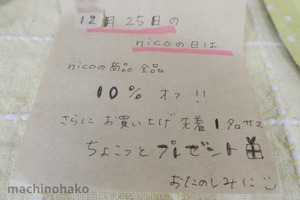 12月25日の
nicoの日は
nicoの商品 全品
10% オフ!!
さらに お買い上げ 先着 1名サマ
ちょこっと プレゼント
おたのしみに
machinohako